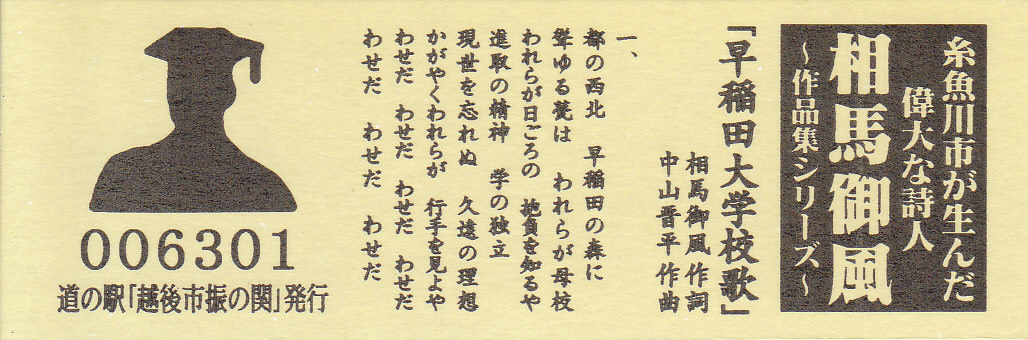 糸魚川市が生んだ
偉大な詩人
相馬御風
～作品集シリーズ～
「早稲田大学校歌」
相馬御風作詞
中山晋平作曲
一、
都の西北　早稲田の森に
聳ゆる甍は　われらが母校
われらが日ごろの　抱負を知るや
進取の精神　学の独立
現世を忘れぬ　久遠の理想
かがやくわれらが　行手を見よや
わせだ　わせだ　わせだ　わせだ
わせだ　わせだ　わせだ
006301
道の駅「越後市振の関」発行